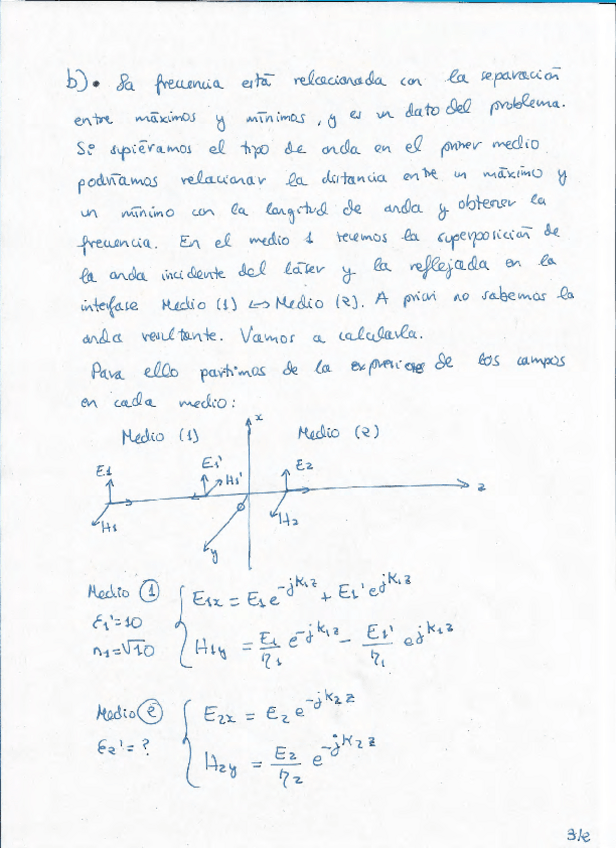 b) • La frecuencia está relacionada con la separación
entre máximos y mínimos, y es un dato del problema.
Si supiéramos el tipo de onda en el primer medio
podríamos relacionar la distancia entre un máximo y
un mínimo con la longitud de onda y obtener la
frecuencia. En el medio 1 tenemos la superposición de
la onda incidente del láser y la reflejada en la
interfase Medio (1) ↔ Medio (2). A priori no sabemos la
onda resultante. Vamos a calcularla.
Para ello partimos de la expresiones de los campos
en cada medio:
x
Medio (1) Medio (2)
E1 E1' H1' E2
z
H1 H2
y
Medio ① E1x = E1 e^{-jK1z} + E1' e^{jK1z}
ε1' = 10
n1 = √10 H1y = E1/η1 e^{-jK1z} - E1'/η1 e^{jK1z}
Medio ② E2x = E2 e^{-jK2z}
ε2' = ?
H2y = E2/η2 e^{-jK2z}